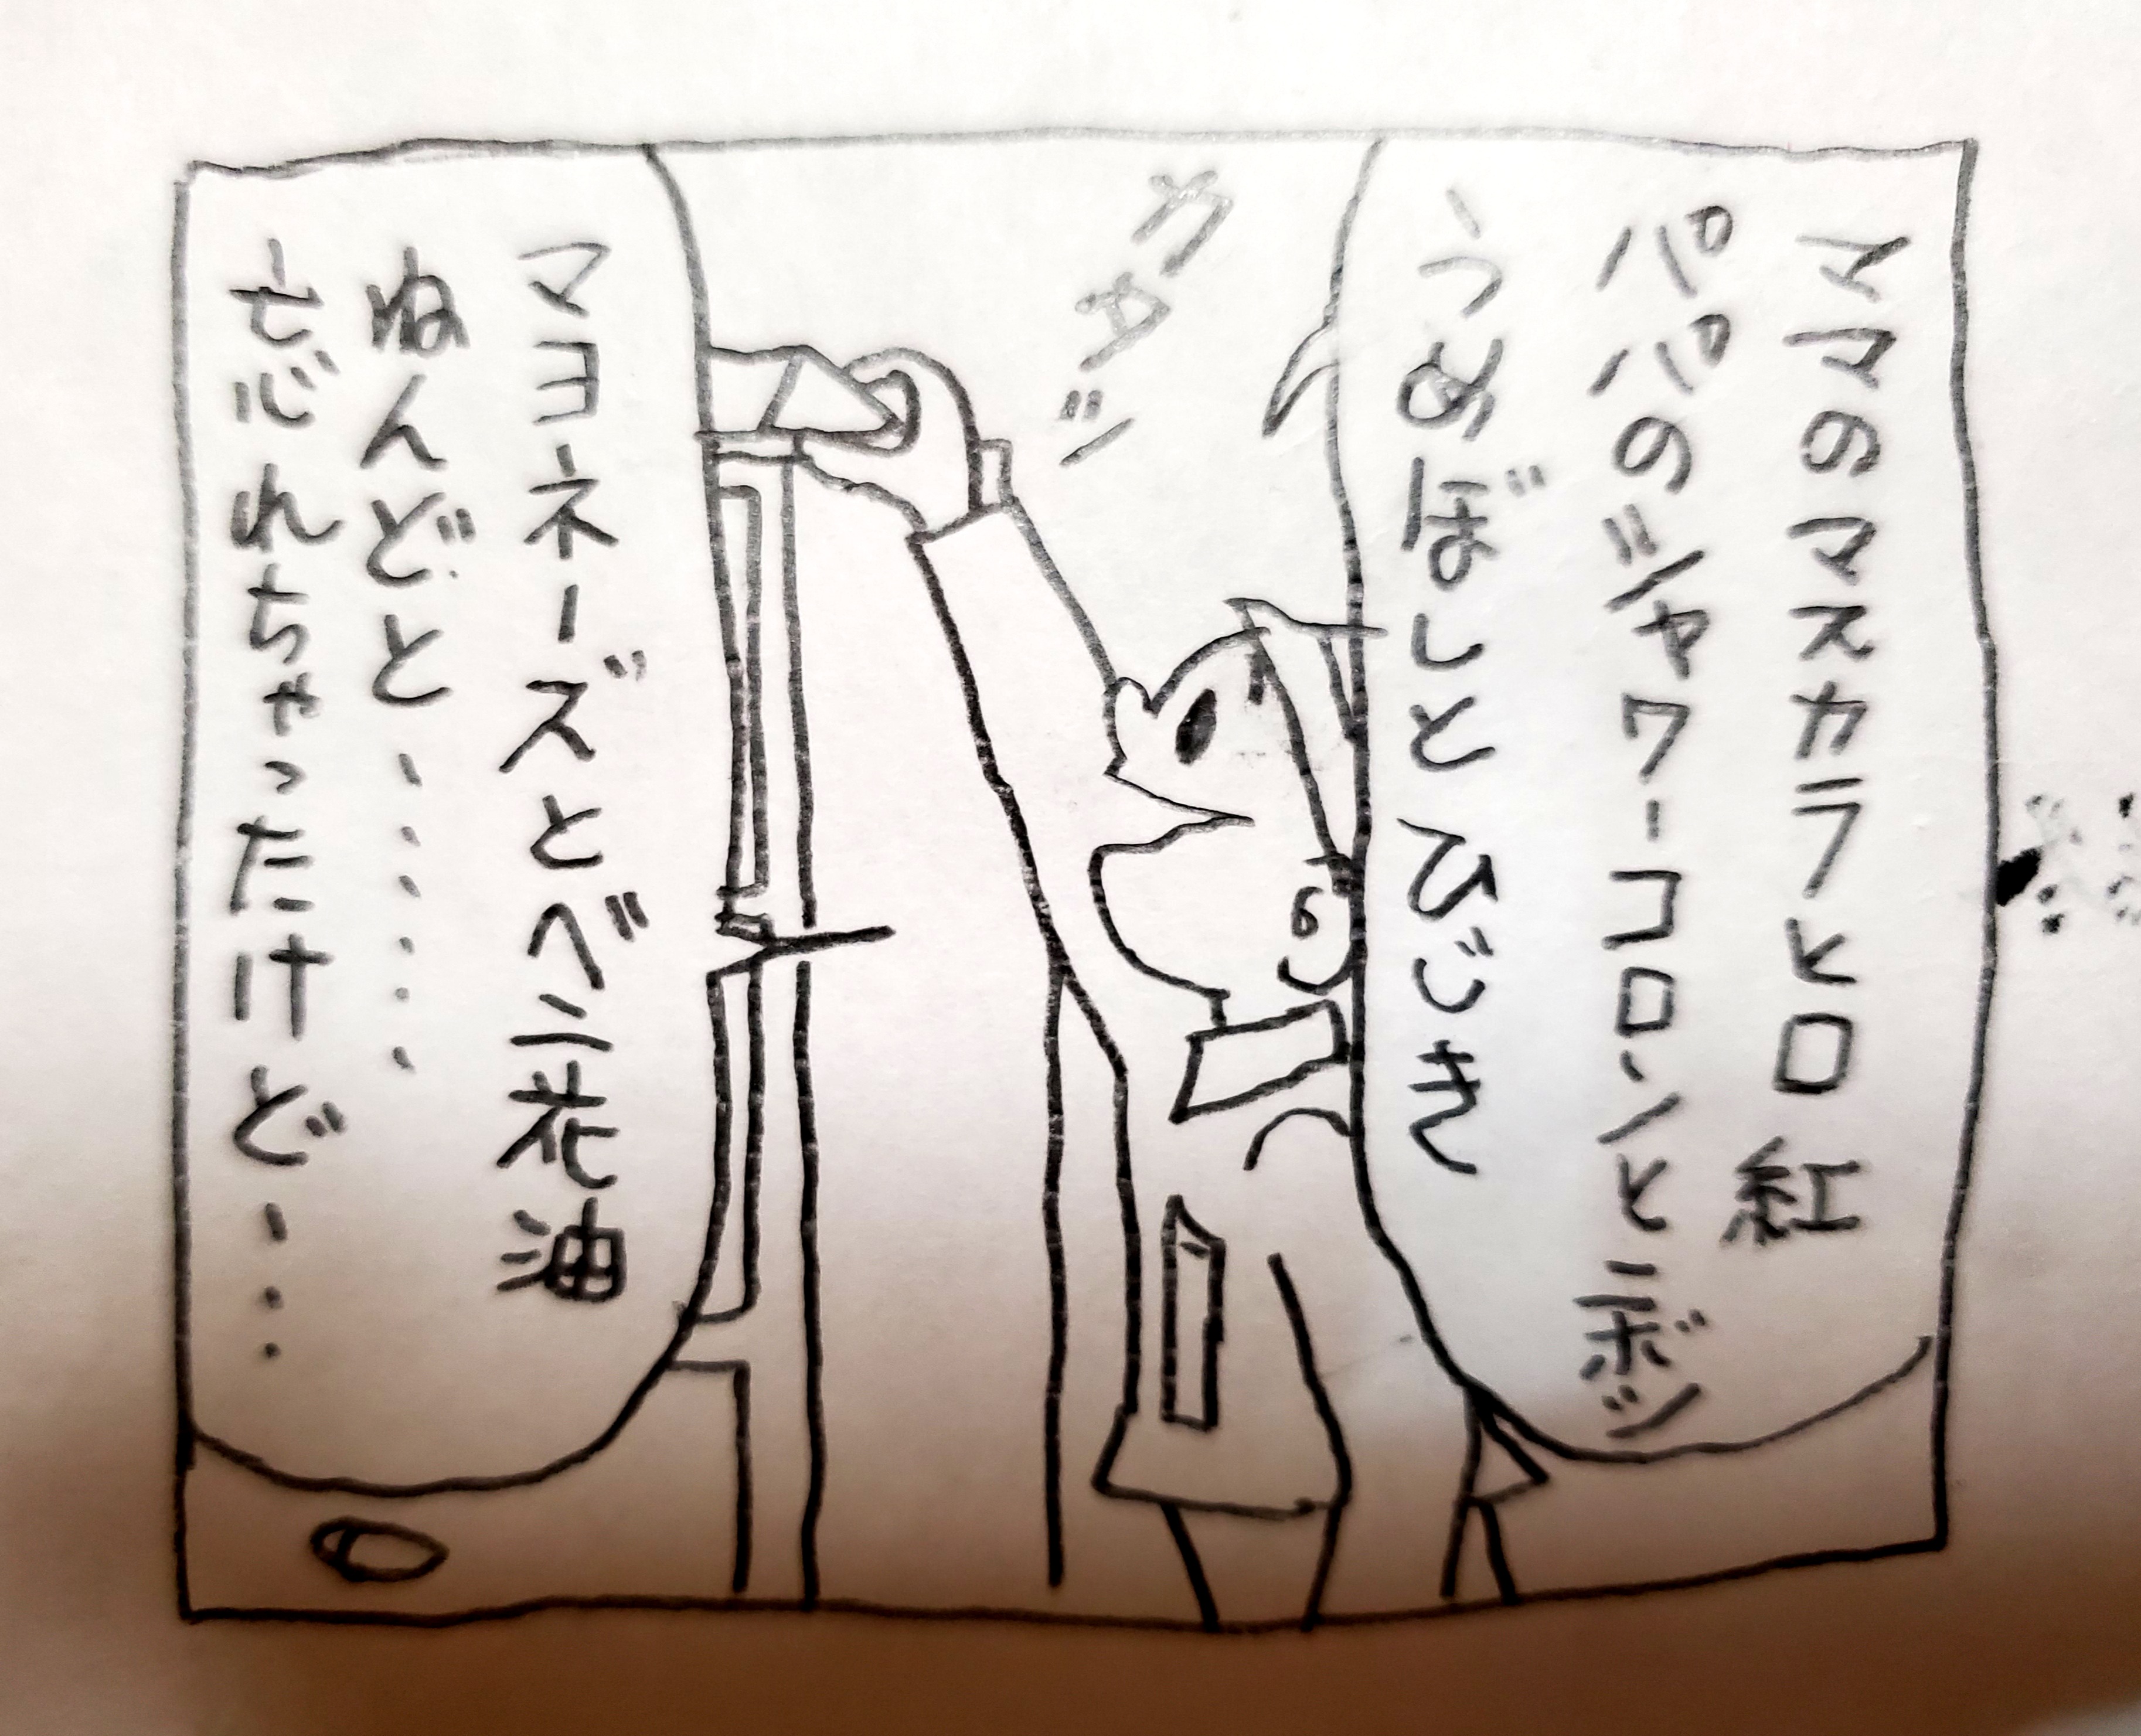 ママのマスカラと口紅
パパのシャワーコロンとニボシ
うめぼしとひじき
ガサッ
マヨネーズとベニ花油
ねんどと・・・・・・
忘れちゃったけど・・・・